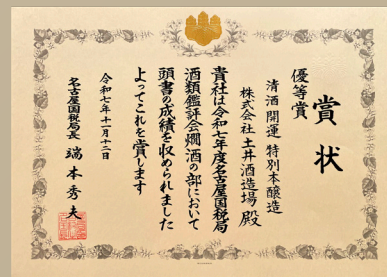 賞状
優等賞
清酒 開運 特別本醸造
株式会社 土井酒造場 殿
貴社は令和七年度名古屋国税局
酒類鑑評会燗酒の部において
頭書の成績を収められました
よってこれを賞します
令和七年十一月十二日
名古屋国税局長 端本秀夫